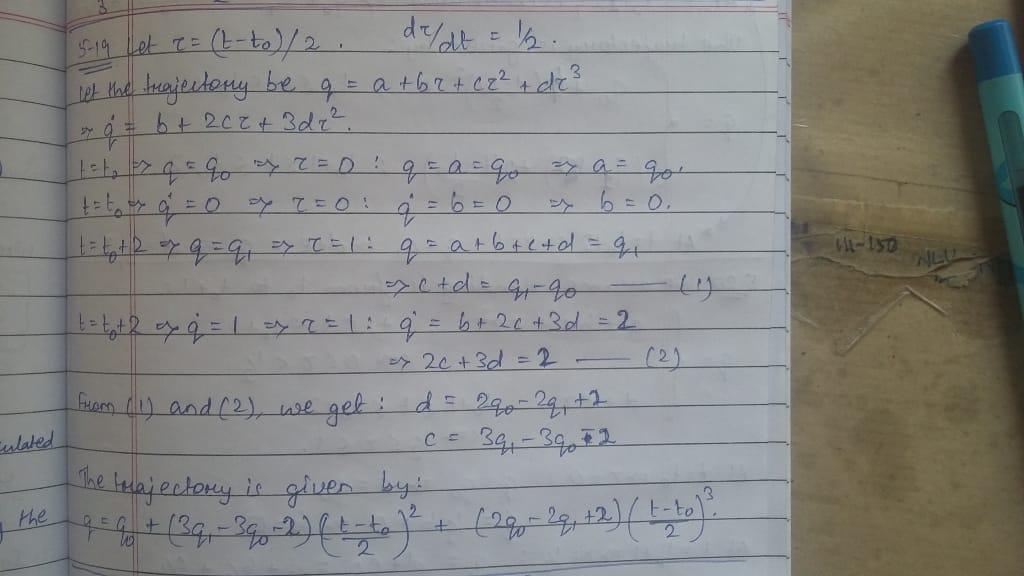 3
5-19 Let τ = (t-t₀)/2 . dτ/dt = ½ .
Let the trajectory be q = a + bτ + cτ² + dτ³
⇒ q̇ = b + 2cτ + 3dτ².
t=t₀ ⇒ q = q₀ ⇒ τ = 0 : q = a = q₀ ⇒ a = q₀.
t=t₀ ⇒ q̇ = 0 ⇒ τ = 0 : q̇ = b = 0 ⇒ b = 0.
t=t₀+2 ⇒ q = q₁ ⇒ τ = 1 : q = a + b + c + d = q₁
⇒ c + d = q₁ - q₀ —— (1)
t=t₀+2 ⇒ q̇ = 1 ⇒ τ = 1 : q̇ = b + 2c + 3d = 2
⇒ 2c + 3d = 2 —— (2)
From (1) and (2), we get : d = 2q₀ - 2q₁ + 2
c = 3q₁ - 3q₀ - 2
ulated
The trajectory is given by :
the
q = q₀ + (3q₁ - 3q₀ - 2) ((t-t₀)/2)² + (2q₀ - 2q₁ + 2) ((t-t₀)/2)³.
NLU